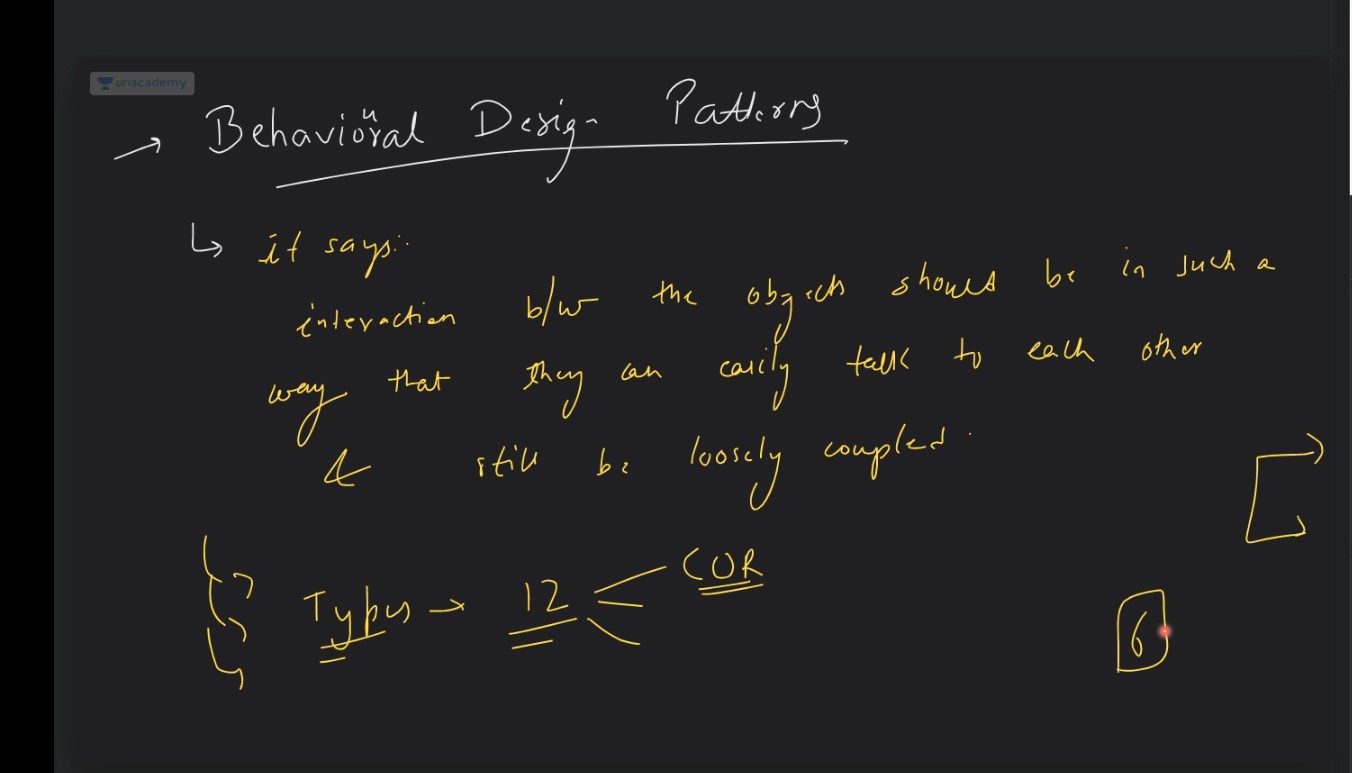 unacademy
→ Behavioural Design Patterns
↳ it says:
interaction b/w the objects should be in such a
way that they can easily talk to each other
& still be loosely coupled.
Types → 12
COR
6